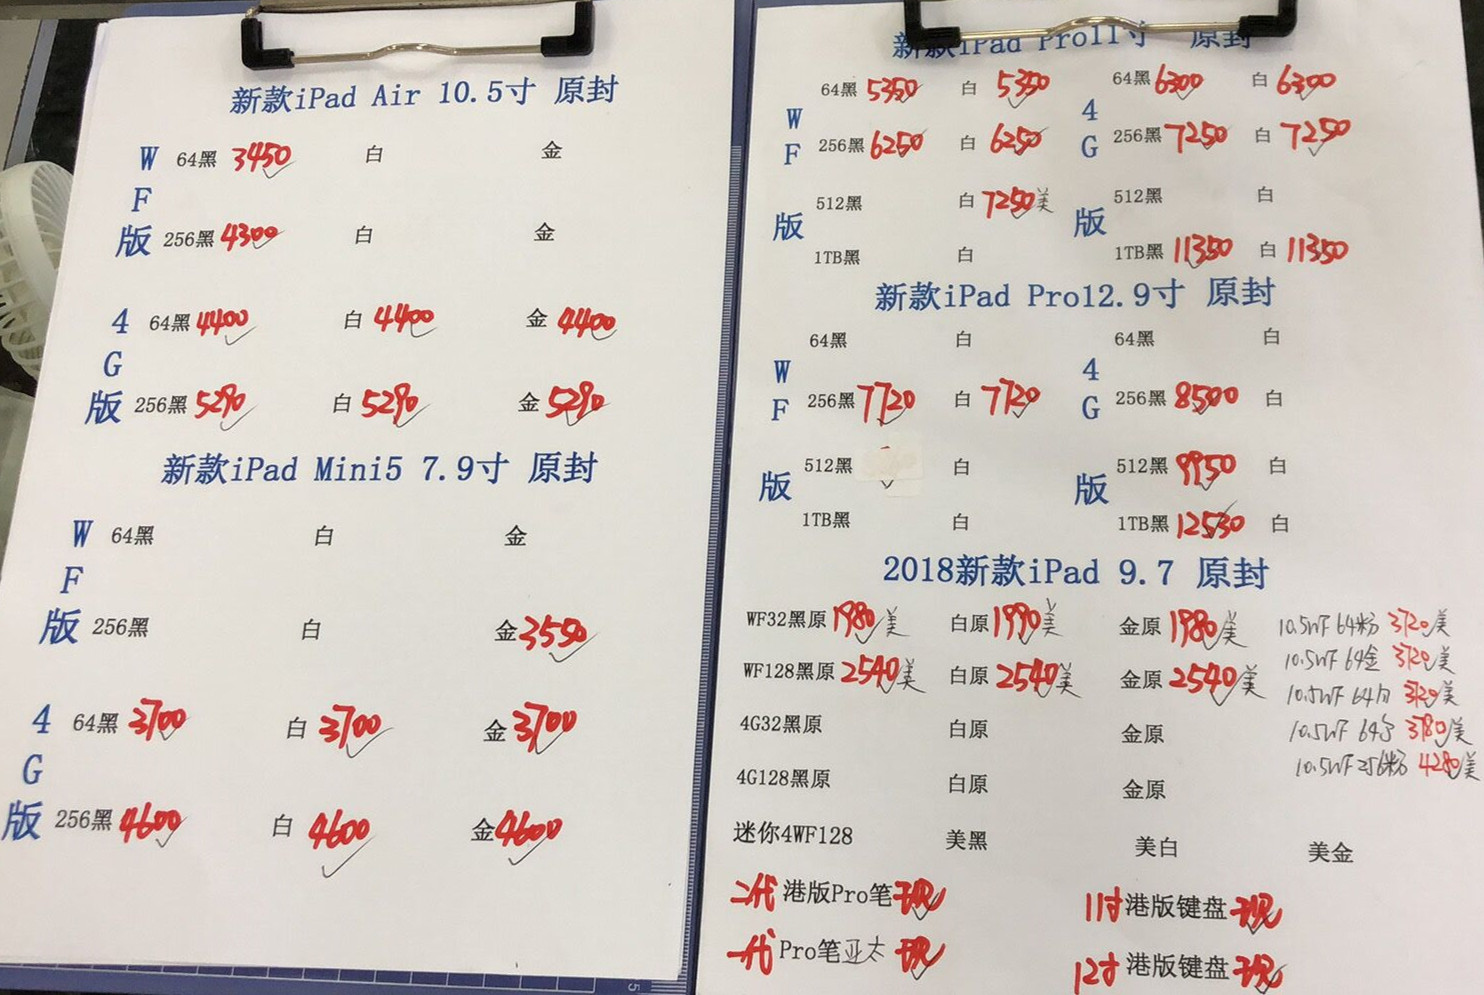 新款iPad Air 10.5寸 原封
WF版 64黑 3450 白 金
256黑 4300 白 金
4G版 64黑 4400 白 4400 金 4400
256黑 5290 白 5290 金 5290
新款iPad Mini5 7.9寸 原封
WF版 64黑 白 金
256黑 白 金 3550
4G版 64黑 3700 白 3700 金 3700
256黑 4600 白 4600 金 4600
新款iPad Pro11寸 原封
WF版 64黑 5350 白 5350 4G版 64黑 6300 白 6300
256黑 6250 白 6250 256黑 7250 白 7250
512黑 白 7250美 512黑 白
1TB黑 白 1TB黑 11350 白 11350
新款iPad Pro12.9寸 原封
WF版 64黑 白 4G版 64黑 白
256黑 7720 白 7720 256黑 8500 白
512黑 白 512黑 9950 白
1TB黑 白 1TB黑 12530 白
2018新款iPad 9.7 原封
WF32黑原 1980美 白原 1990美 金原 1980美 10.5WF 64粉 3720美
10.5WF 64金 3720美
WF128黑原 2540美 白原 2540美 金原 2540美
10.5WF 64白 3720美
4G32黑原 白原 金原 10.5WF 64 3780美
10.5WF 256粉 4280美
4G128黑原 白原 金原
迷你4WF128 美黑 美白 美金
二代 港版Pro笔 现 11寸 港版键盘 现
一代 Pro笔亚太 现 12寸 港版键盘 现